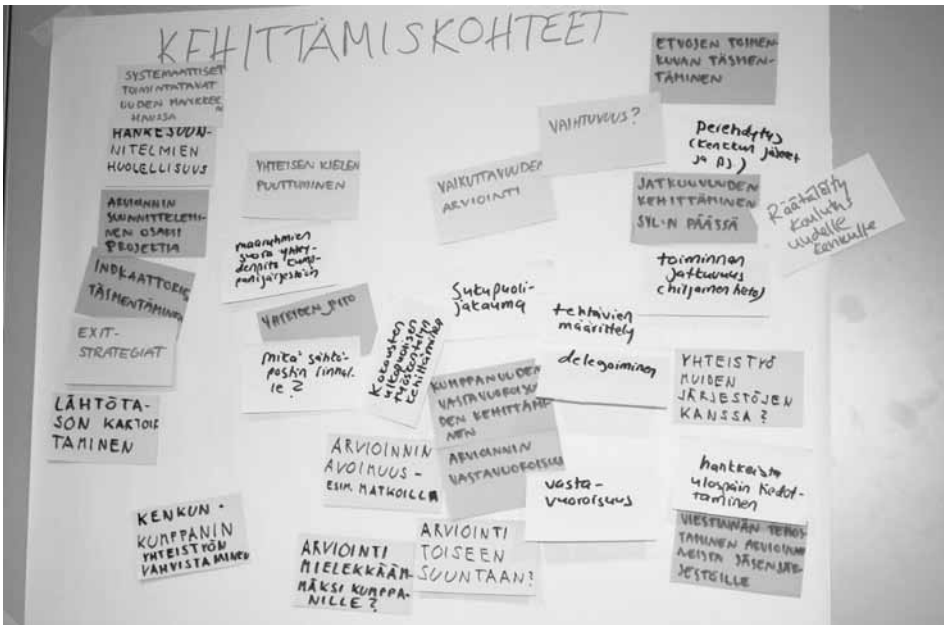 KEHITTÄMISKOHTEET
SYSTEMAATTISET
TOIMINTATAVAT
UUDEN HANKKEEN
HAUSSA
HANKESUUN-
NITELMIEN
HUOLELLISUUS
ARVIOINNIN
SUUNNITTELEMI-
NEN OSAKSI
PROJEKTIA
INDIKAATTORIEN
TÄSMENTÄMINEN
EXIT-
STRATEGIAT
LÄHTÖTA-
SON KARTOIT
TAMINEN
KENKUN-
KUMPPANIN
YHTEISTYÖN
VAHVISTAMINEN
YHTEISEN KIELEN
PUUTTUMINEN
maaryhmien
suora yhtey-
denpito kump-
panijärjestöihin
YHTEYDEN PITO
mikä sähkö-
postin linnal-
le?
Kokousten
ulkopuolisen
työskentelyn
kehittäminen
ARVIOINNIN
AVOIMUUS -
ESIM. MATKOILLA
ARVIOINTI
MIELEKKÄÄM-
MÄKSI KUMPPA-
NILLE?
VAIKUTTAVUUDEN
ARVIOINTI
Sukupuoli-
jakauma
KUMPPANUUDEN
VASTAVUOROISUU
DEN KEHITTÄMI-
NEN
ARVIOINNIN
VASTAVUOROISUUS
ARVIOINTI
TOISEEN
SUUNTAAN?
VAIHTUVUUS?
tehtävien
määrittely
delegoiminen
vasta-
vuoroisuus
ETVOJEN TOIMEN-
KUVAN TÄSMEN-
TÄMINEN
perehdytys
(kenkun jäsenet
ja pj.)
JATKUVUUDEN
KEHITTÄMINEN
SYL:N PÄÄSSÄ
Räätälöity
koulutus
uudelle
kenkulle
toiminnan
jatkuvuus
(hiljainen tieto)
YHTEISTYÖ
MUIDEN
JÄRJESTÖJEN
KANSSA?
hankkeista
ulospäin tiedot-
taminen
VIESTINNÄN TEHOS-
TAMINEN ARVIOIN
NEISTA JÄSENJÄR-
JESTÖILLE